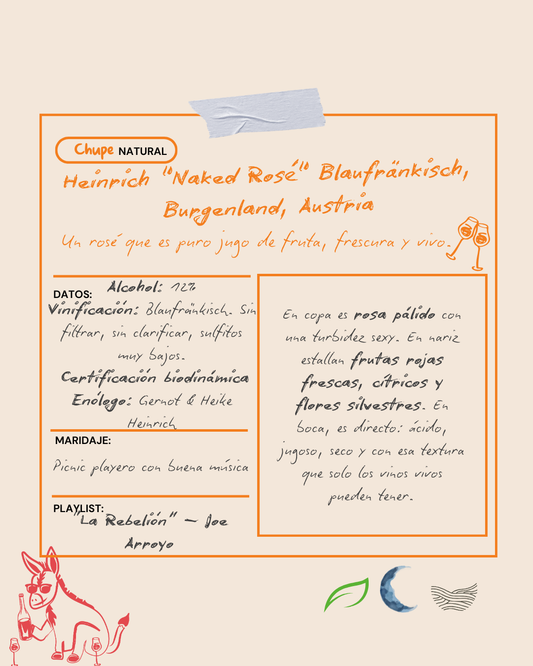 Chupe NATURAL
Heinrich "Naked Rosé" Blaufränkisch,
Burgenland, Austria
Un rosé que es puro jugo de fruta, frescura y vivo.
DATOS:
Alcohol: 12%
Vinificación: Blaufränkisch. Sin
filtrar, sin clarificar, sulfitos
muy bajos.
Certificación biodinámica
Enólogo: Gernot & Heike
Heinrich
MARIDAJE:
Picnic playero con buena música
PLAYLIST:
"La Rebelión" – Joe
Arroyo
En copa es rosa pálido con
una turbidez sexy. En nariz
estallan frutas rojas
frescas, cítricos y
flores silvestres. En
boca, es directo: ácido,
jugoso, seco y con esa textura
que solo los vinos vivos
pueden tener.